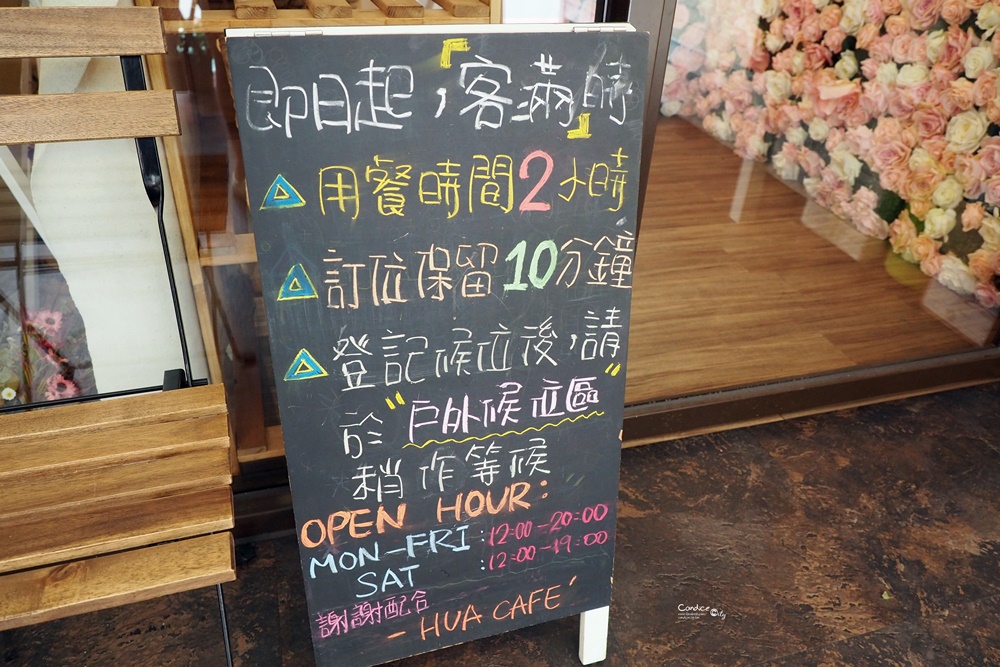 即日起，「客滿時」
用餐時間2小時
訂位保留10分鐘
登記候位後，請
於"戶外候位區"
稍作等候
OPEN HOUR:
MON-FRI:12:00-20:00
SAT :12:00-19:00
謝謝配合
- HUA CAFE'
Candice City